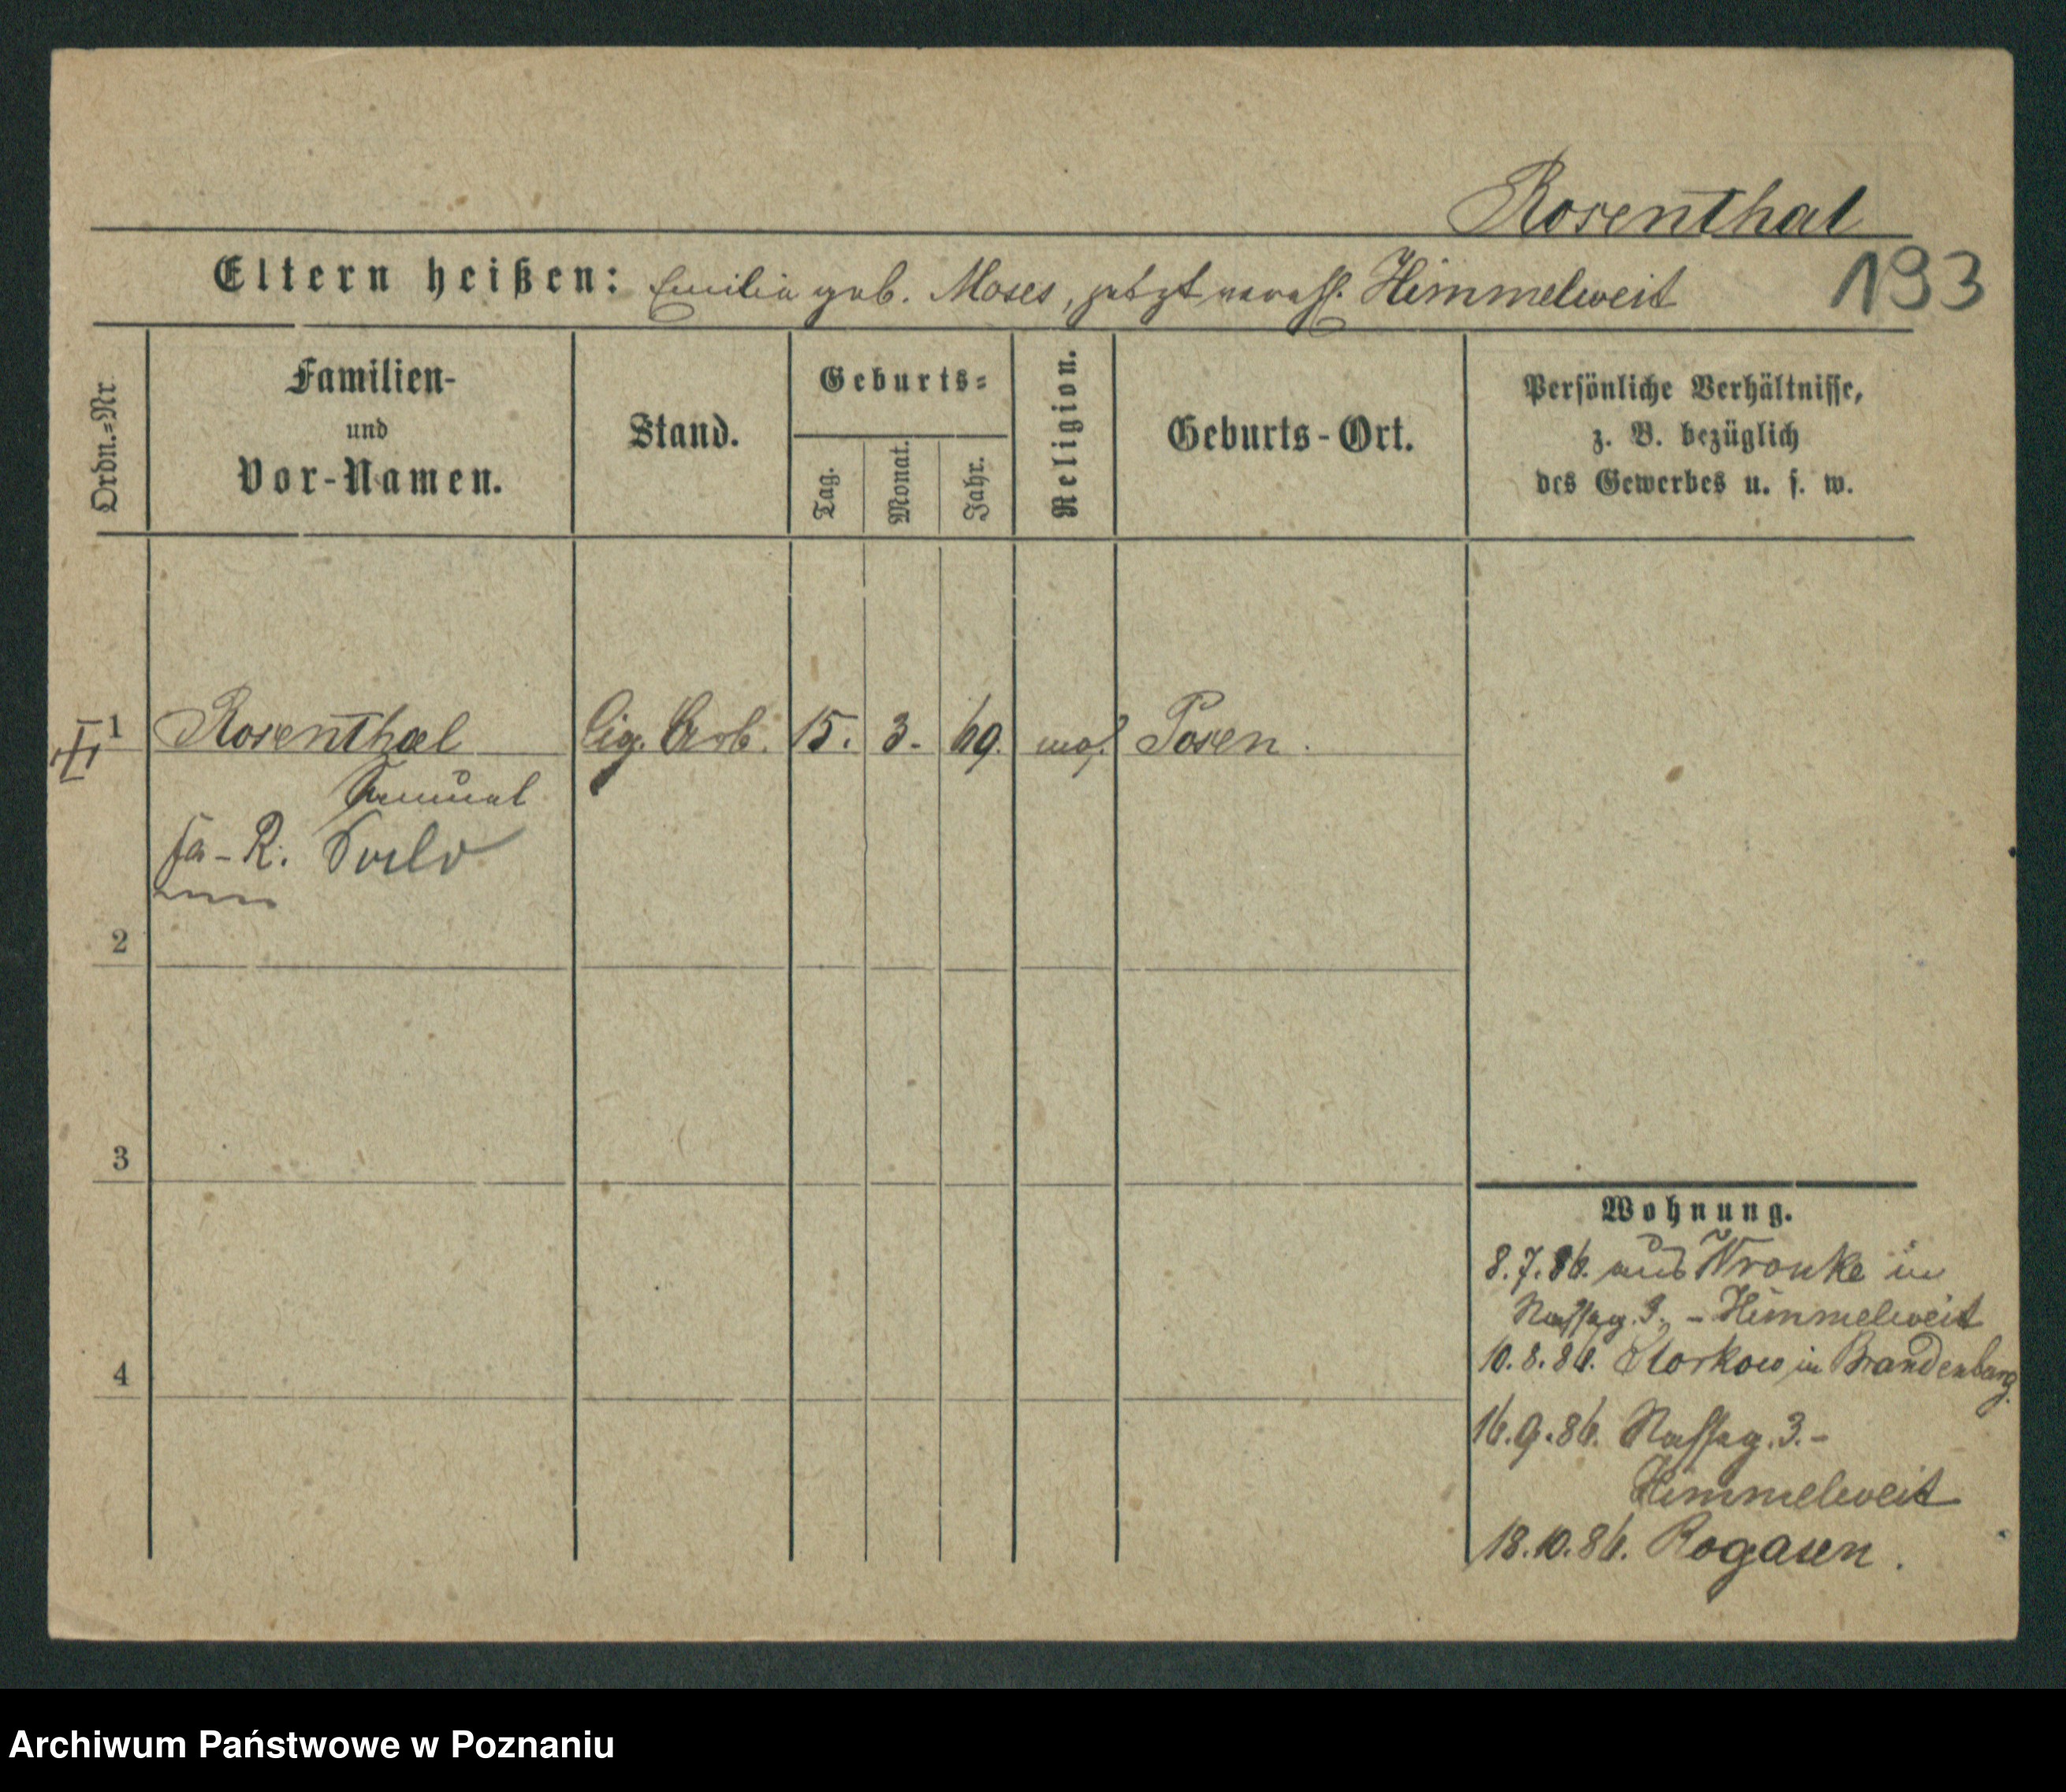 Rosenthal
Eltern heißen: Emilie geb. Moses, jetzt vereh. Himmelweit 193
Ordn.=Nr.
Familien-
und
Vor-Namen.
Stand.
Geburts=
Tag.
Monat.
Jahr.
Religion.
Geburts-Ort.
Persönliche Verhältnisse,
z. B. bezüglich
des Gewerbes u. s. w.
1 Rosenthal Cig. Arb. 15. 3. 69. mos. Posen.
Samuel
R.
2
3
4
Wohnung.
8.7.86. aus Wronke in
Naßeg. 3. - Himmelweit
10.8.86. Storkow in Brandenburg.
16.9.86. Naßeg. 3. -
Himmelweit
18.10.86. Rogasen.
Archiwum Państwowe w Poznaniu